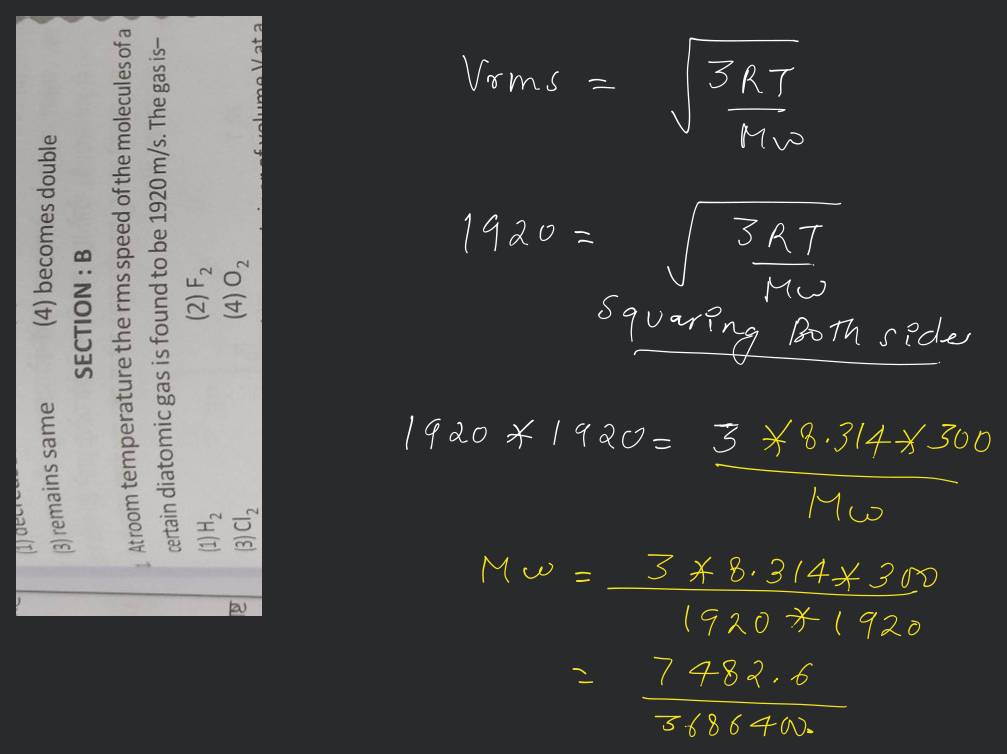 (3) remains same (4) becomes double
SECTION : B
At room temperature the rms speed of the molecules of a
certain diatomic gas is found to be 1920 m/s. The gas is–
(1) H₂ (2) F₂
(3) Cl₂ (4) O₂
Vrms = √(3RT/Mw)
1920 = √(3RT/Mw)
Squaring Both sides
1920 * 1920 = 3 * 8.314 * 300 / Mw
Mw = 3 * 8.314 * 300 / 1920 * 1920
= 7482.6 / 3686400.